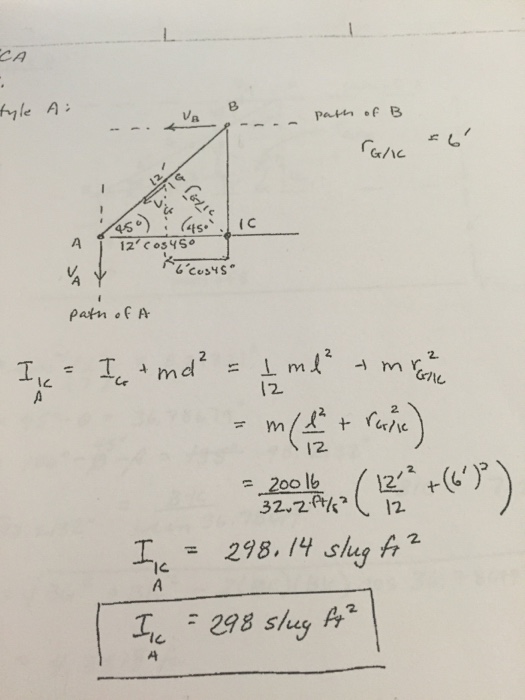 CA
tyle A:
V_B B path of B
r_G/IC = 6'
12' G
V_G r_G/IC
45° 45° IC
A 12' cos45°
6' cos45°
V_A
path of A
I_IC_A = I_G + md² = 1/12 ml² + m r²_G/IC
= m(l²/12 + r²_G/IC)
= 200 lb / 32.2 ft/s² (12'²/12 + (6')²)
I_IC_A = 298.14 slug ft²
I_IC_A = 298 slug ft²